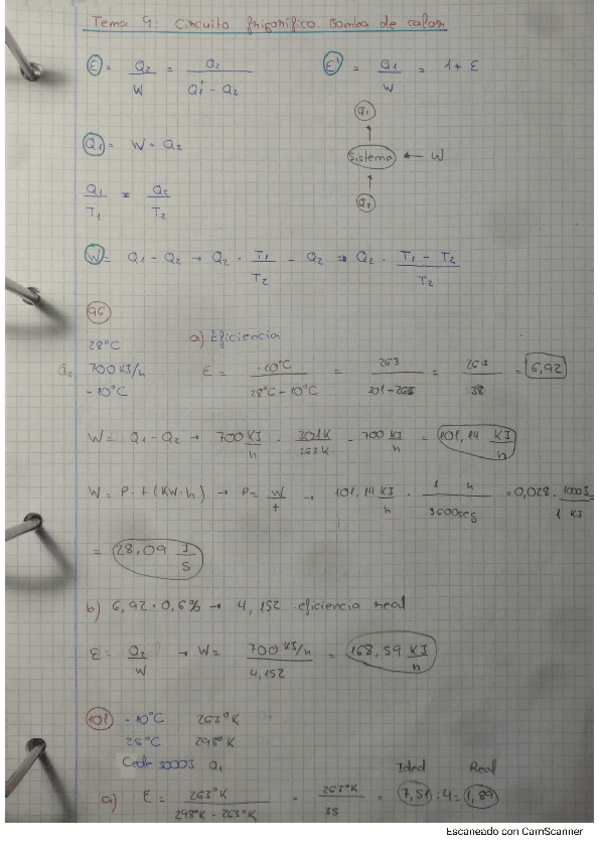 Tema 9: Circuito frigorífico. Bomba de calor
Ɛ = Q2/W = Q2/(Q1 - Q2)    Ɛ' = Q1/W = 1 + Ɛ
Q1
Q1 = W + Q2    Sistema ← W
Q1/T1 = Q2/T2    Q2
W = Q1 - Q2 → Q2 · T1/T2 - Q2 ⇒ Q2 · (T1 - T2)/T2
96
28°C    a) Eficiencia
Q2 700 KJ/h    Ɛ = -10°C/(28°C - 10°C) = 263/(301-263) = 263/38 = 6,92
-10°C
W = Q1 - Q2 → 700 KJ/h · 301K/263K - 700 KJ/h = 101,14 KJ/h
W = P · t (KW·h) → P = W/t → 101,14 KJ/h · 1 h/3600seg = 0,028 · 1000J/1 KJ
= 28,09 J/s
b) 6,92 · 0,6% → 4,152 eficiencia real
Ɛ = Q2/W → W = 700 KJ/h/4,152 = 168,59 KJ/h
101 -10°C 263°K
25°C 298°K
Cede Q1    Ideal Real
a) Ɛ = 263°K/(298°K - 263°K) = 263°K/35 = 7,51 : 4 = 1,89
Escaneado con CamScanner